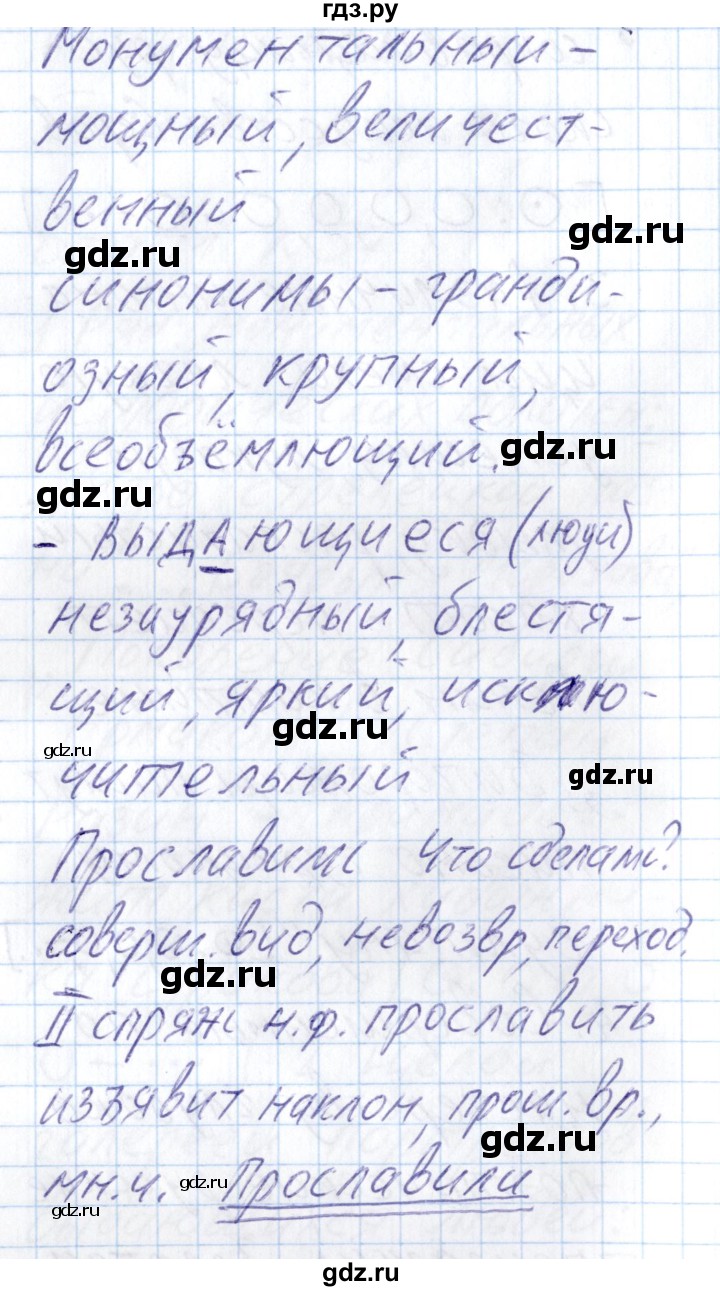 гдз.ру
Монументальный –
мощный, величест-
венный
gdz.ru
gdz.ru
синонимы – гранди-
озный, крупный,
всеобъёмлющий.
gdz.ru
gdz.ru
– выдАющиеся (люди)
незаурядный, блестя-
щий, яркий, исклю-
gdz.ru
gdz.ru
чительный
gdz.ru
Прославили Что сделали?
соверш. вид, невозвр, переход.
gdz.ru
II спряж н.ф. прославить
изъявит наклон, прош. вр.,
gdz.ru
мн.ч. Прославили
gdz.ru
gdz.ru
gdz.ru